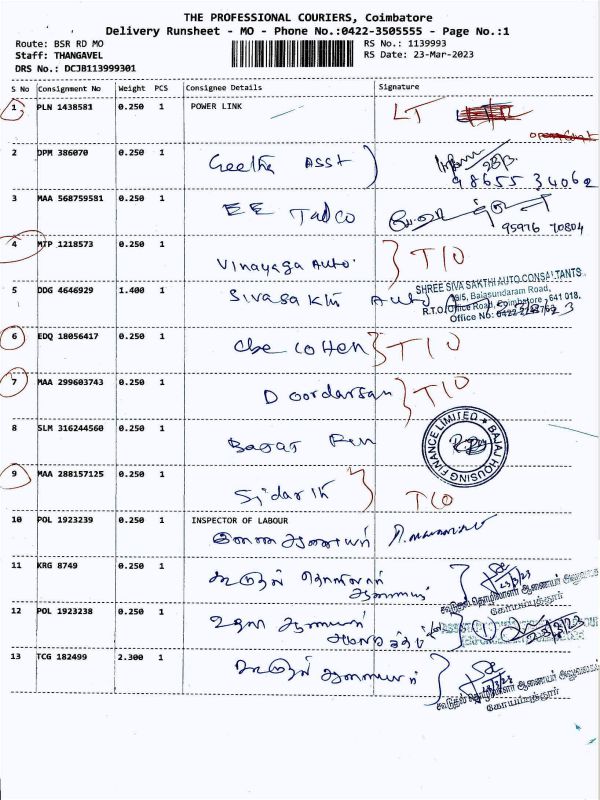 THE PROFESSIONAL COURIERS, Coimbatore
Delivery Runsheet - MO - Phone No.:0422-3505555 - Page No.:1
Route: BSR RD MO
RS No.: 1139993
Staff: THANGAVEL
RS Date: 23-Mar-2023
DRS No.: DCJB113999301
S No Consignment No Weight PCS Consignee Details Signature
1 PLN 1438581 0.250 1 POWER LINK LT
2 DPM 386070 0.250 1
Geetha ASST
98655 34062
3 MAA 568759581 0.250 1
EE TADCO
95976 70804
4 MTP 1218573 0.250 1
Vinayaga Auto T/O
5 DDG 4646929 1.400 1
Sivasakthi Auto
SHREE SIVA SAKTHI AUTO CONSULTANTS
Balasundaram Road,
R.T.O. Office Road, Coimbatore - 641 018.
Office No:
6 EDQ 18056417 0.250 1
Cbe Cotten T/O
7 MAA 299603743 0.250 1
Doordarsan T/O
8 SLM 316244560 0.250 1
BAJAJ HOUSING FINANCE LIMITED
9 MAA 288157125 0.250 1
Sidarth T/O
10 POL 1923239 0.250 1 INSPECTOR OF LABOUR
ஆணையர்
11 KRG 8749 0.250 1
கூடுதல் தொழிலாளர்
ஆணையர்
23/3/23
கூடுதல் தொழிலாளர் ஆணையர் அலுவலகம்
கோயம்புத்தூர்
12 POL 1923238 0.250 1
உதவி ஆணையர்
23/3/23
13 TCG 182499 2.300 1
கூடுதல் ஆணையர்
23/3/23
கூடுதல் தொழிலாளர் ஆணையர் அலுவலகம்
கோயம்புத்தூர்